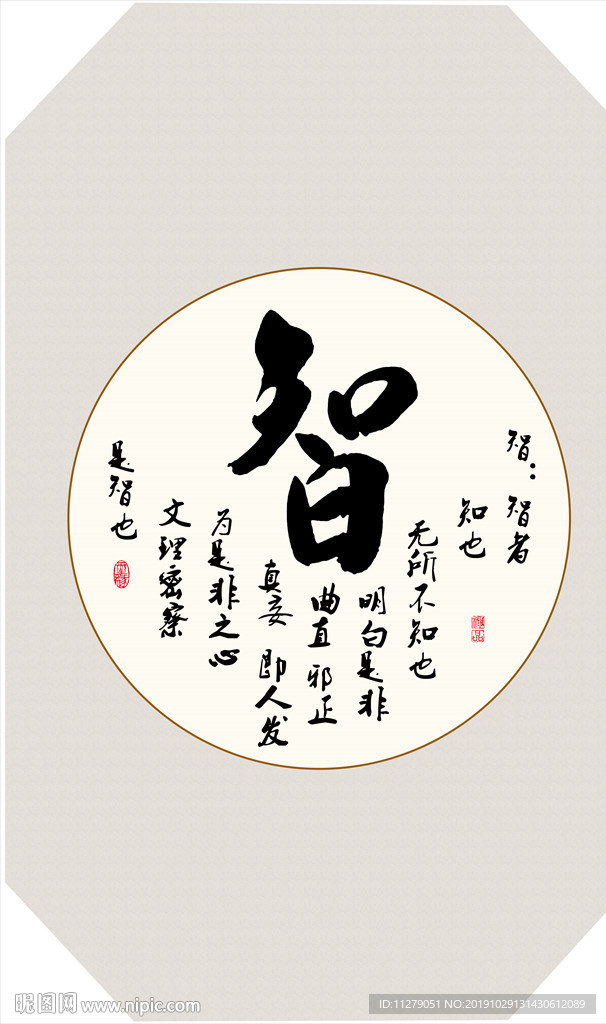 智
智：智者
知也
无所不知也
明白是非
曲直邪正
真妄即人发
为是非之心
文理密察
是智也
昵图网 www.nipic.com
ID:11279051 NO:20191029131430612089